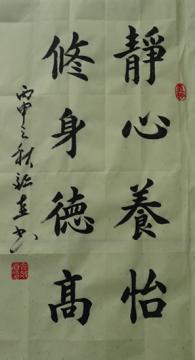 靜心養怡
修身德高
丙申之秋